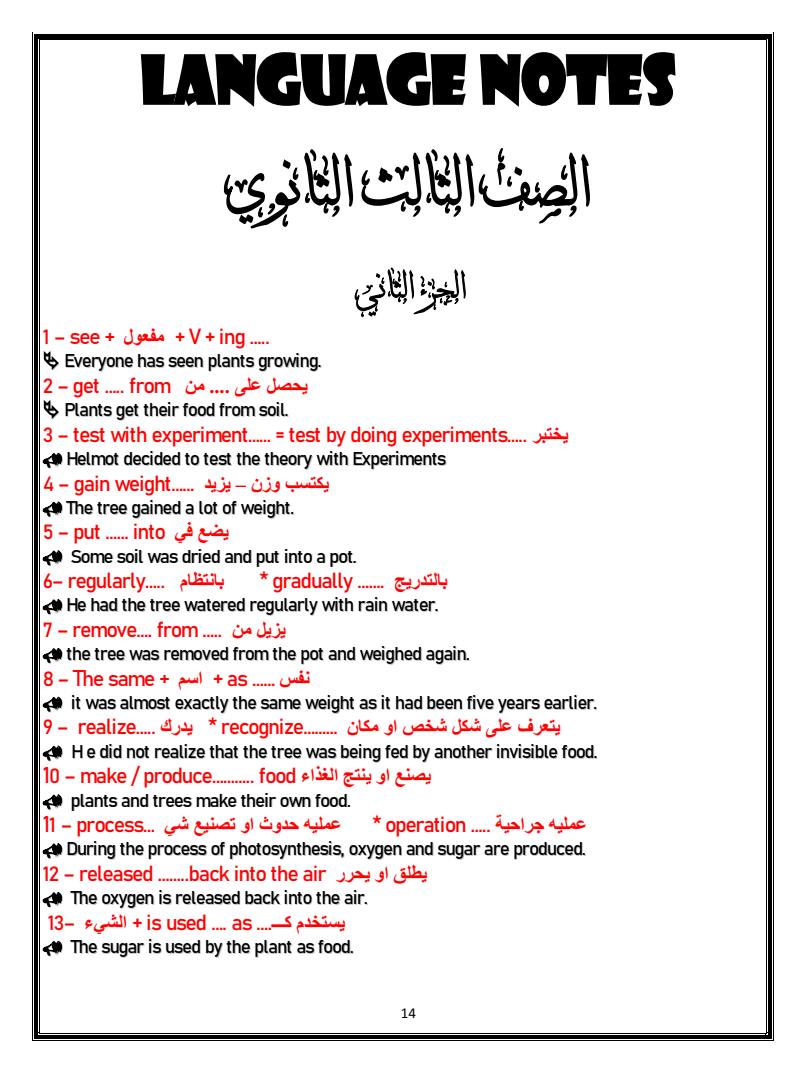 LANGUAGE NOTES
الصف الثالث الثانوي
الجزء الثاني
1 – see + مفعول + V + ing .....
Everyone has seen plants growing.
2 – get ..... from يحصل على .... من
Plants get their food from soil.
3 – test with experiment...... = test by doing experiments..... يختبر
Helmot decided to test the theory with Experiments
4 – gain weight...... يكتسب وزن – يزيد
The tree gained a lot of weight.
5 – put ...... into يضع في
Some soil was dried and put into a pot.
6– regularly..... بانتظام * gradually ....... بالتدريج
He had the tree watered regularly with rain water.
7 – remove.... from ..... يزيل من
the tree was removed from the pot and weighed again.
8 – The same + اسم + as ...... نفس
it was almost exactly the same weight as it had been five years earlier.
9 – realize..... يدرك * recognize......... يتعرف على شكل شخص او مكان
H e did not realize that the tree was being fed by another invisible food.
10 – make / produce........... food يصنع او ينتج الغذاء
plants and trees make their own food.
11 – process... عمليه حدوث او تصنيع شي * operation ..... عمليه جراحية
During the process of photosynthesis, oxygen and sugar are produced.
12 – released ........back into the air يطلق او يحرر
The oxygen is released back into the air.
13– الشيء + is used .... as .... يستخدم كـــ
The sugar is used by the plant as food.
14